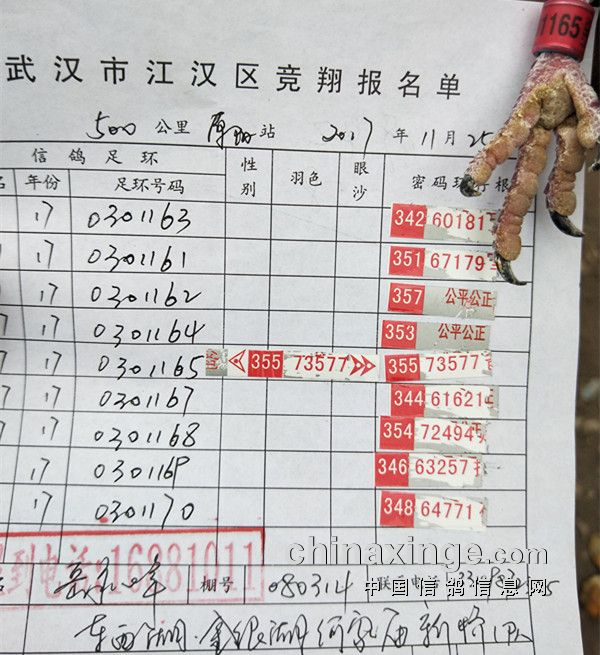 1165
武汉市江汉区竞翔报名单
500 公里 站 2017 年 11 月 25
信鸽足环 性别 羽色 眼沙 密码环存根
年份 足环号码
17 0301163 342 60181
17 0301161 351 67179
17 0301162 357 公平公正
17 0301164 353 公平公正
17 0301165 355 73577 355 73577
17 0301167 344 61621
17 0301168 354 72494
17 0301169 346 63257
17 0301170 348 64771
到电话:16881011
chinaxinge.com
棚号 080314 联 电话
中国信鸽信息网
东西湖·金银湖